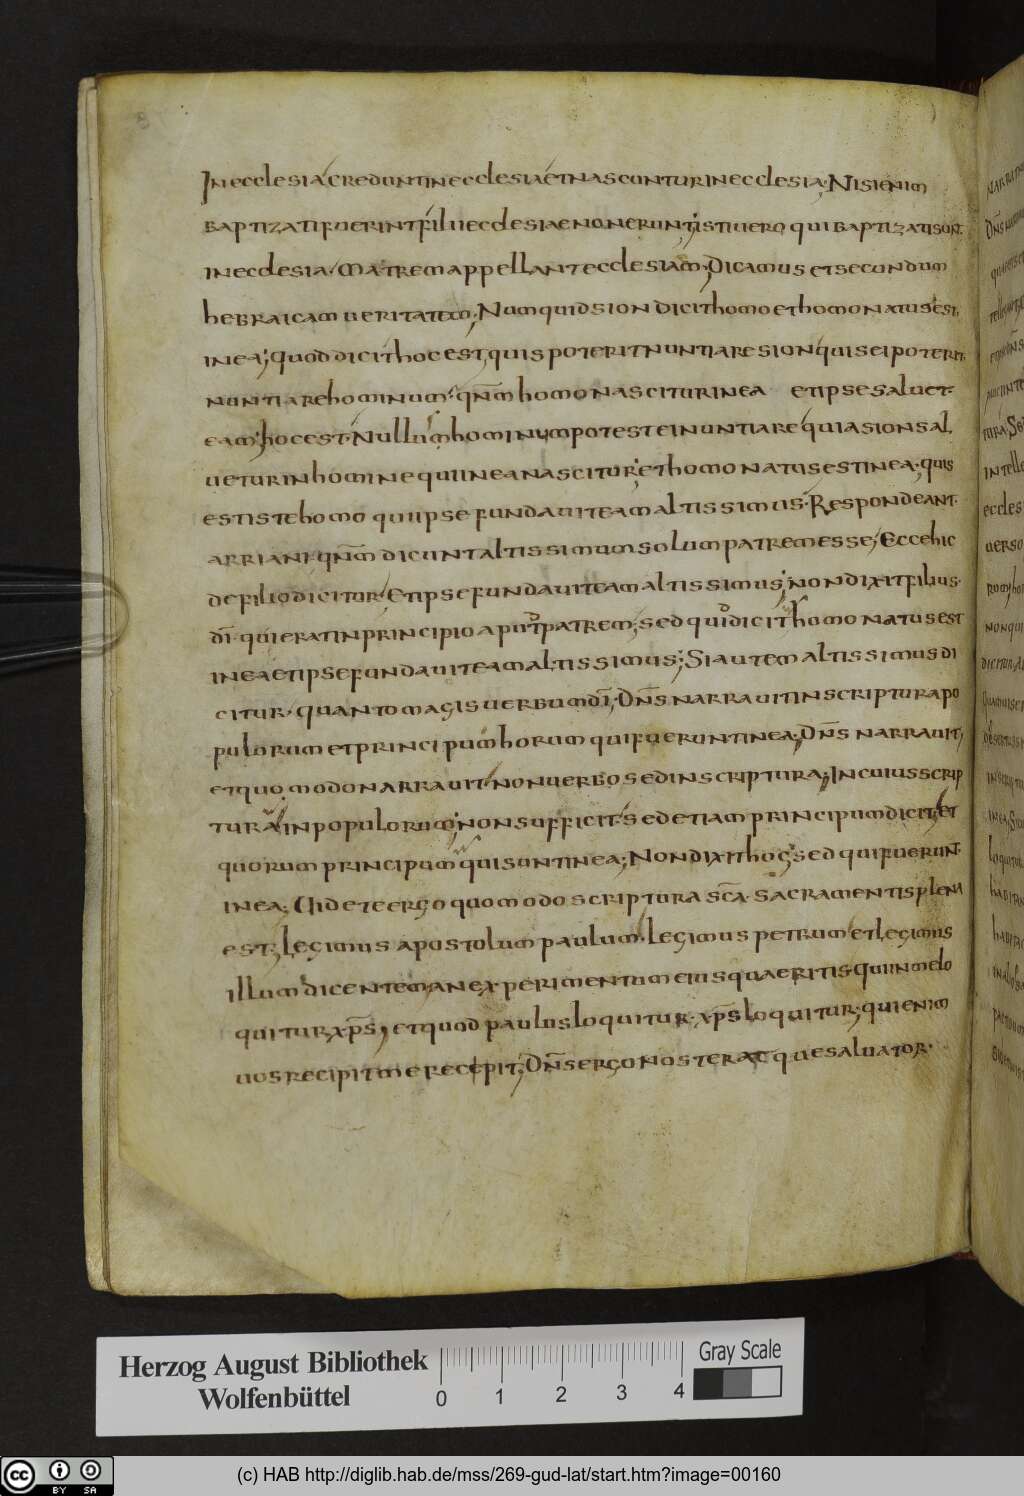 In ecclesia credunt in ecclesia et nascuntur in ecclesia; Nisi enim
baptizati fuerint filii ecclesiae non erunt; isti uero qui baptizati sunt
in ecclesia matrem appellant ecclesiam; Dicamus et secundum
hebraicam ueritatem; Numquid sion dicit homo et homo natus est
in ea; quod dicit hoc est, quis poterit nuntiare sion quis ei poterit
nuntiare hominum. qnm̄ homo nascitur in ea et ipse saluet
eam; hoc est. Nullum hominum potest ei nuntiare quia sion sal
uetur in homine qui in ea nascitur; et homo natus est in ea; quis
est iste homo qui ipse fundauit eam altissimus. Respondeant
arriani qnm̄ dicunt altissimum solum patrem esse, Ecce hic
de filio dicitur, Et ipse fundauit eam altissimus; non dixit filius
dī. qui erat in principio aput patrem; sed quid dicit homo natus est
in ea et ipse fundauit eam altissimus; Si autem altissimus di
citur, quanto magis uerbum dī; Dn̄s narrauit in scriptura po
pulorum et principum horum qui fuerunt in ea; Dn̄s narrauit,
et quomodo narrauit, non uerbo sed in scriptura; In cuius scrip
tura, in populorum; non sufficit, sed etiam principum dicit, et
quorum principum qui sunt in ea; Non dixit hoc sed qui fuerunt
in ea; Uidete ergo quomodo scriptura sc̄a sacramentis plena
est; legimus apostolum paulum. legimus petrum et legimus
illum dicentem an experimentum eius quaeritis qui in me lo
quitur xp̄s, et quod paulus loquitur xp̄s loquitur; qui enim
uos recipit me recepit; Dn̄s ergo noster atque saluator
Herzog August Bibliothek
Wolfenbüttel
0 1 2 3 4
Gray Scale
cc BY SA
(c) HAB http://diglib.hab.de/mss/269-gud-lat/start.htm?image=00160